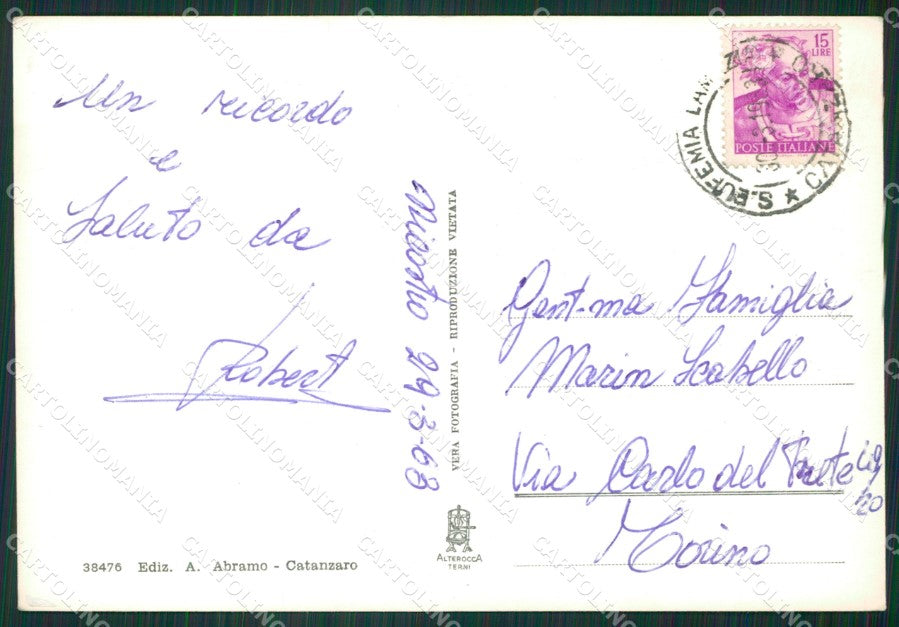 Un ricordo
e
Saluto da
Robert
29-3-68
VERA FOTOGRAFIA - RIPRODUZIONE VIETATA
15
LIRE
POSTE ITALIANE
S. EUFEMIA LAMEZIA
Gent-ma Famiglia
Marin Scabello
Via Carlo del Prete
Torino
ALTEROCCA
TERNI
38476 Ediz. A. Abramo - Catanzaro
CARTOLINOMANIA